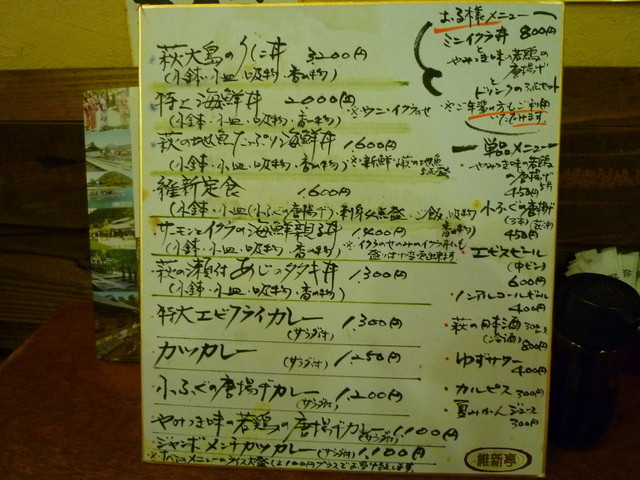 萩大島のうに丼 3200円
(小鉢・小皿・吸物・香の物)
特上海鮮丼 2000円 ※ウニ・イクラのせ
(小鉢・小皿・吸物・香の物)
萩の地魚たっぷり海鮮丼 1.600円
(小鉢・小皿・吸物・香の物)
維新定食 1.600円
(小鉢・小皿(小ふぐの唐揚げ)・刺身4点盛・ご飯・吸物・香の物)
サーモンとイクラの海鮮親子丼 1.400円
(小鉢・小皿・吸物・香の物)
萩の瀬付あじのタタキ丼 1.300円
(小鉢・小皿・吸物・香の物)
特大エビフライカレー 1.300円
(サラダ付)
カツカレー 1.250円
(サラダ付)
小ふぐの唐揚げカレー 1.200円
(サラダ付)
やみつき味の若鶏の唐揚げカレー 1.100円
(サラダ付)
ジャンボメンチカツカレー 1.100円
(サラダ付)
お子様メニュー
ミニイクラ丼 800円
と
やみつき味の若鶏の
唐揚げ
と
ドリンクのセット
※ご年輩の方もご利用
いただけます。
単品メニュー
・やみつき味の若鶏
の唐揚げ
5ヶ
450円
・小ふぐの唐揚げ
450円
・エビスビール
(中ビン)
600円
・ノンアルコールビール
400円
・萩の日本酒 300ml
(冷酒) 800円
・ゆずサワー
400円
・カルピス 300円
・夏みかんジュース
300円
維新亭